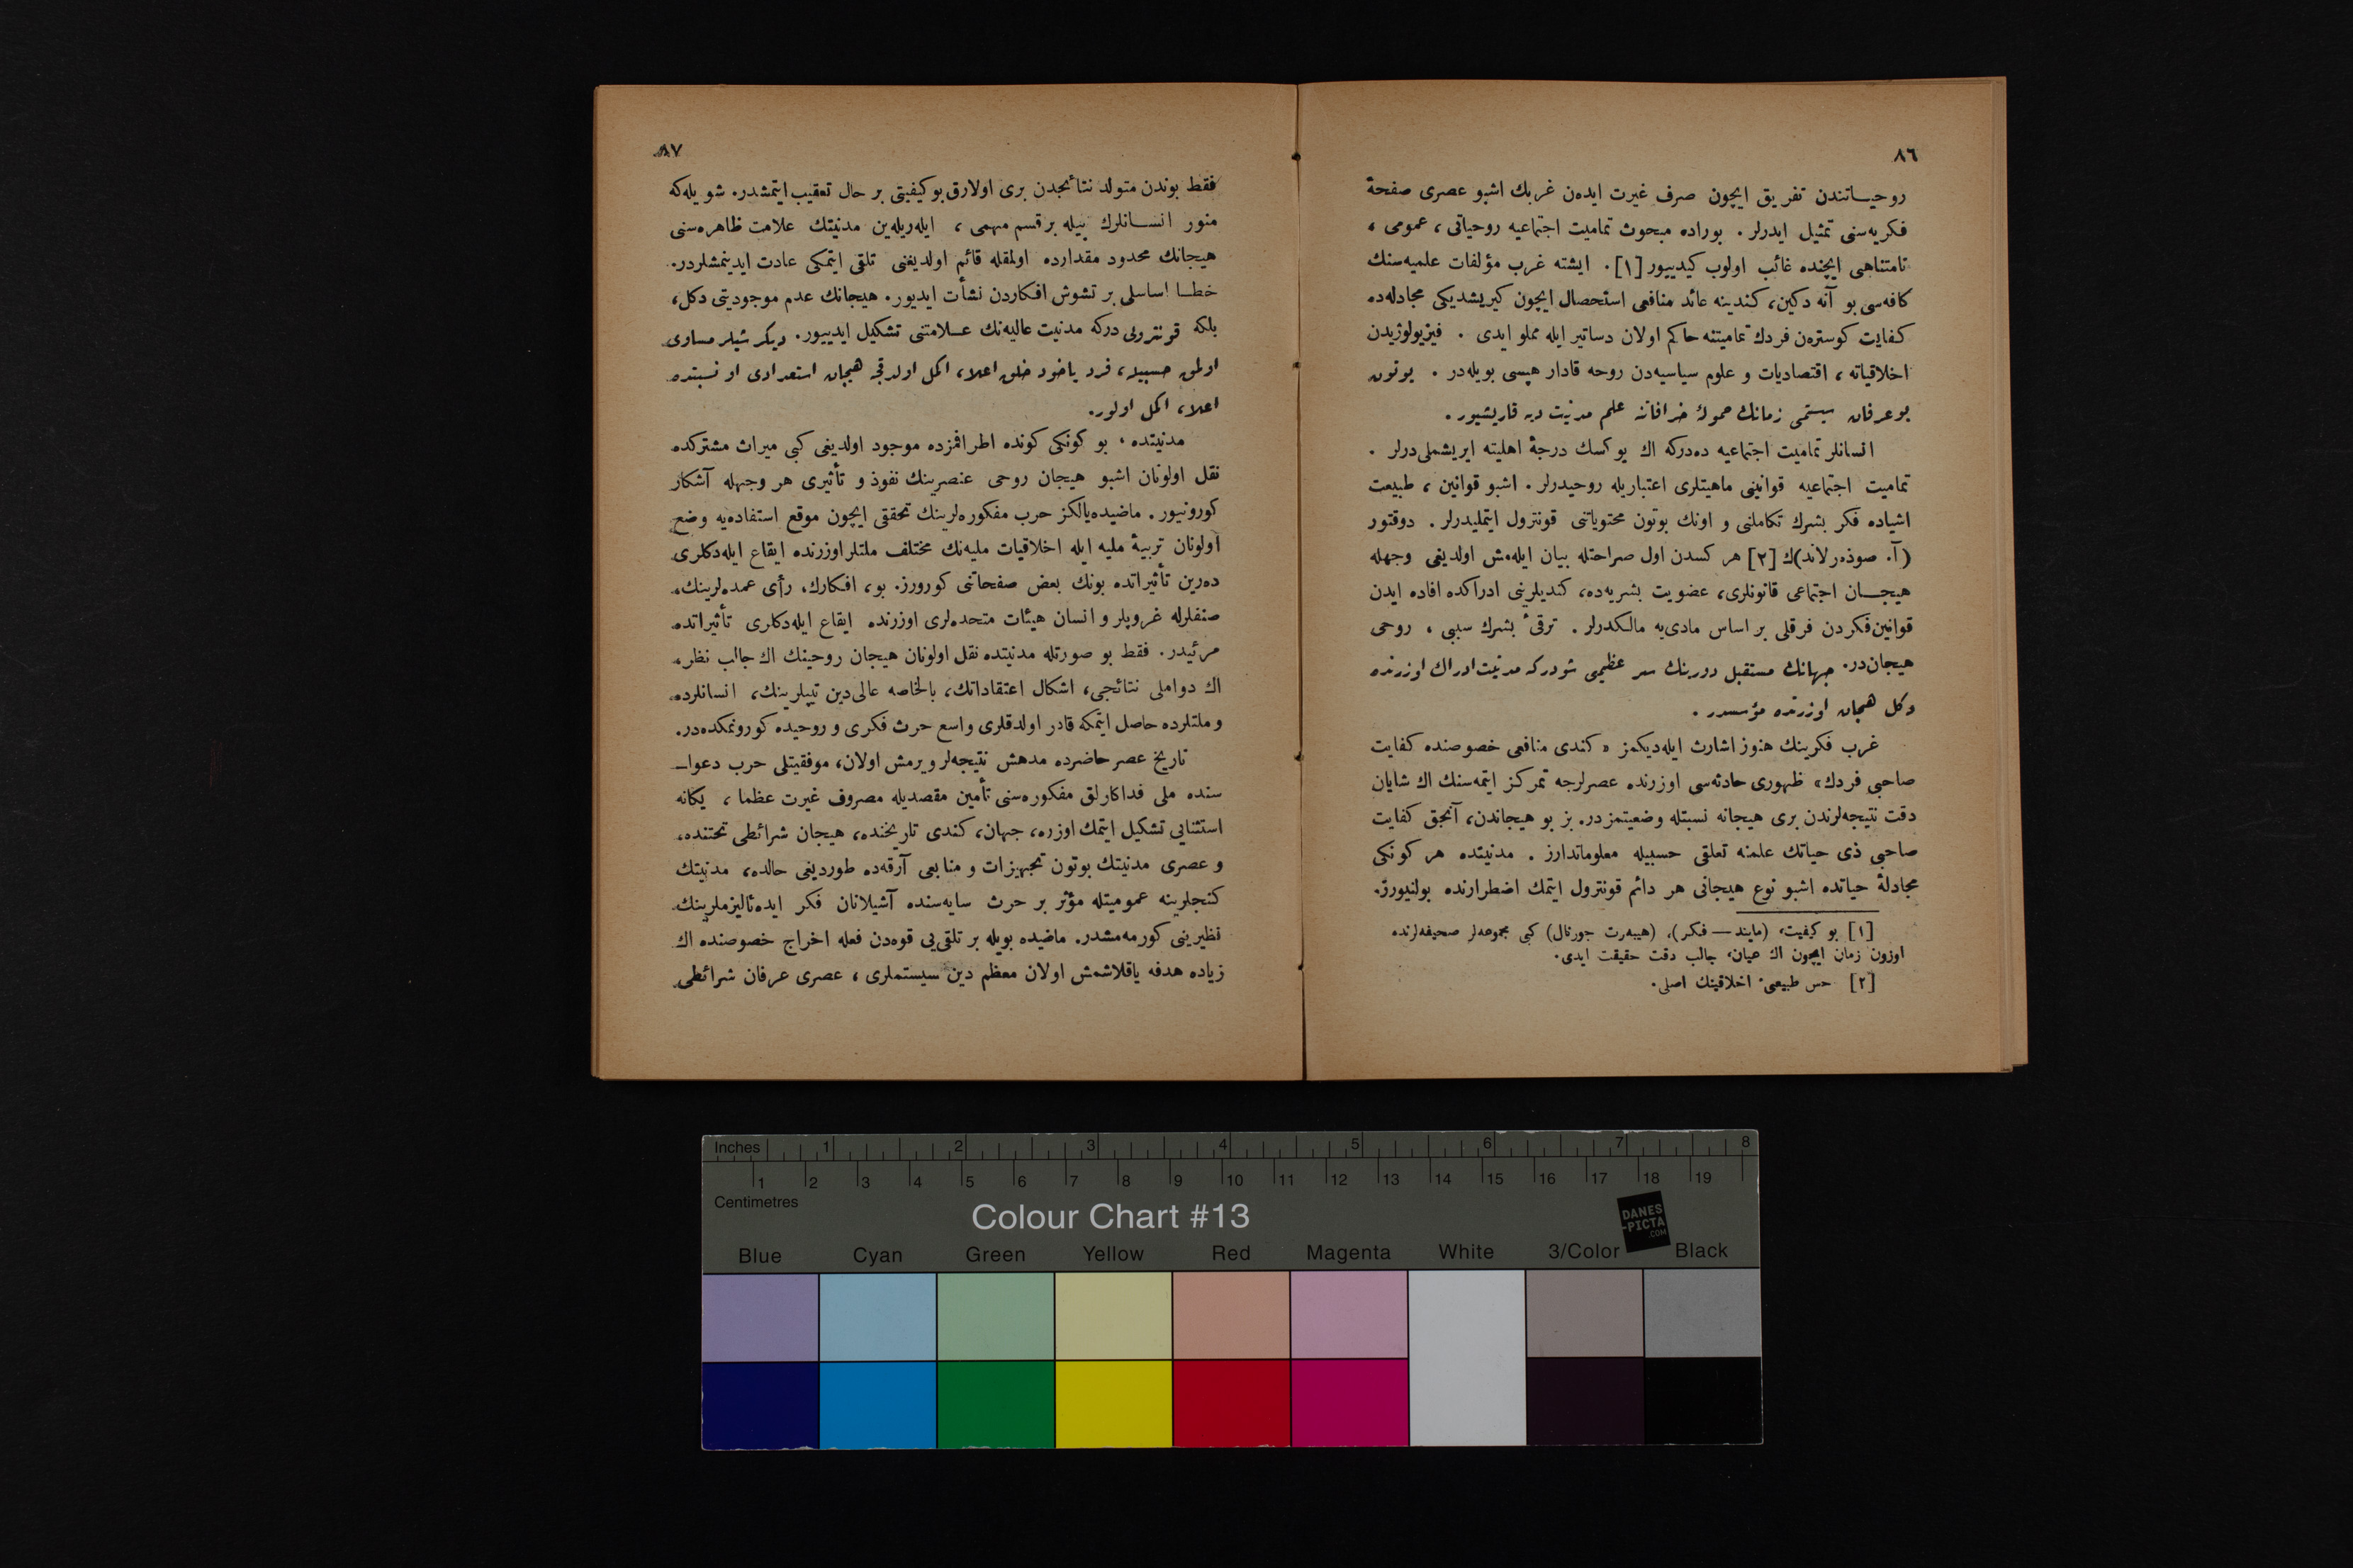 ٨٦
روحیاتندن تفریق ایچون صرف غیرت ایدەن غربك اشبو عصری صفحهٔ
فكریه‌سنی تمثیل ایدرلر . بوراده مبحوث تمامیت اجتماعیه روحیاتی ، عمومی ،
نامتناهی ایچنده غائب اولوب كیدییور [١] . ایشته غرب مؤلفات علمیه‌سنك
كافه‌سی بو آنه دكین، كندینه عائد منافعی استحصال ایچون كیریشدیكی مجادله‌ده
كفایت كوسترەن فردك تمامیتنه حاكم اولان دساتیر ایله مملو ایدی . فیزیولوژیدن
اخلاقیاته ، اقتصادیات و علوم سیاسیه‌دن روحه قادار هپسی بویله‌در . بوتون
بو عرفان سیستمی زمانك مموك خرافاتنه علم مدنیت دیه قاریشیور .
انسانلر تمامیت اجتماعیه ده‌دركه اك یوكسك درجهٔ اهلیته ایریشملی‌درلر .
تمامیت اجتماعیه قوانینی ماهیتلری اعتباریله روحیدرلر . اشبو قوانین ، طبیعت
اشیاده فكر بشرك تكاملنی و اونك بوتون محتویاتنی قونترول ایتملیدرلر . دوقتور
(آ. صوذەرلاند)ك [٢] هر كسدن اول صراحتله بیان ایله‌مش اولدیغی وجهله
هیجان اجتماعی قانونلری، عضویت بشریه‌ده، كندیلرینی ادراكده افاده ایدن
قوانین فكردن فرقلی بر اساس مادی‌یه مالكدرلر . ترقیٔ بشرك سببی ، روحی
هیجان‌در. جهانك مستقبل دورینك سر عظیمی شودركه مدنیت ادراك اوزرنده
دكل هیجان اوزرنده مؤسسدر .
غرب فكرینك هنوز اشارت ایله‌دیكمز « كندی منافعی خصوصنده كفایت
صاحبی فردك » ظهوری حادثه‌سی اوزرنده عصرلرجه تمركز ایتمه‌سنك اك شایان
دقت نتیجه‌لرندن بری هیجانه نسبتله وضعیتمزدر. بز بو هیجاندن، آنجق كفایت
صاحبی ذی حیاتك علمنه تعلقی حسبیله معلوماتدارز . مدنیتده هر كونكی
مجادلهٔ حیاتده اشبو نوع هیجانی هر دائم قونترول ایتمك اضطرارنده بولنیورز.
[١] بو كیفیت، (مایند — فكر)، (هیبەرت جورنال) كبی مجموعه‌لر صحیفه‌لرنده
اوزون زمان ایچون اك عیان، جالب دقت حقیقت ایدی.
[٢] حس طبیعیٔ اخلاقینك اصلی.
٨٧
فقط بوندن متولد نتائجدن بری اولارق بو كیفیتی بر حال تعقیب ایتمشدر. شویله‌كه
منور انسانلرك بیله بر قسم مهمی ، ایله‌ریله‌ین مدنیتك علامت ظاهره‌سنی
هیجانك محدود مقدارده اولمقله قائم اولدیغنی تلقی ایتمكی عادت ایدینمشلردر.
خطا اساسلی بر تشوش افكاردن نشأت ایدیور. هیجانك عدم موجودیتی دكل،
بلكه قونترولی دركه مدنیت عالیه‌نك علامتنی تشكیل ایدییور. دیگر شیلر مساوی
اولمق حسبیله، فرد یاخود خلق اعلا، اكمل اولدقجه هیجان استعدادی او نسبتده
اعلا، اكمل اولور.
مدنیتده ، بو كونكی كونده اطرافمزده موجود اولدیغی كبی میراث مشتركده
نقل اولونان اشبو هیجان روحی عنصرینك نفوذ و تأثیری هر وجهله آشكار
كورونیور . ماضیده یالكز حرب مفكوره‌لرینك تحققی ایچون موقع استفاده‌یه وضع
اولونان تربیهٔ ملیه ایله اخلاقیات ملیه‌نك مختلف ملتلر اوزرنده ایقاع ایله‌دكلری
ده‌رین تأثیراتده بونك بعض صفحاتنی كورورز. بو، افكارك، رأی عمده‌لرینك،
صنفلرله غروپلر و انسان هیئات متحده‌لری اوزرنده ایقاع ایله‌دكلری تأثیراتده
مرئیدر. فقط بو صورتله مدنیتده نقل اولونان هیجان روحینك اك جالب نظر،
اك دواملی نتائجی، اشكال اعتقاداتك، بالخاصه عالی دین تیپلرینك، انسانلرده
و ملتلرده حاصل ایتمكه قادر اولدقلری واسع حرث فكری و روحیده كورونمكده‌در.
تاریخ عصر حاضرده مدهش نتیجه‌لر ویرمش اولان، موفقیتلی حرب دعوا-
سنده ملی فداكارلق مفكوره‌سنی تأمین مقصدیله مصروف غیرت عظما ، یكانه
استثنایی تشكیل ایتمك اوزره، جهان، كندی تاریخنده، هیجان شرائطی تحتنده،
و عصری مدنیتك بوتون تجهیزات و منابعی آرقه‌ده طوردیغی حالده، مدنیتك
كنجلرینه عمومیتله مؤثر بر حرث سایه‌سنده آشیلانان فكر ایده‌ئالیزملرینك
نظیرینی كورمه‌مشدر. ماضیده بویله بر تلقی‌یی قوه‌دن فعله اخراج خصوصنده اك
زیاده هدفه یاقلاشمش اولان معظم دین سیستملری ، عصری عرفان شرائطی
Inches 1 2 3 4 5 6 7 8
1 2 3 4 5 6 7 8 9 10 11 12 13 14 15 16 17 18 19
Centimetres
Colour Chart #13
DANES
-PICTA
.COM
Blue Cyan Green Yellow Red Magenta White 3/Color Black